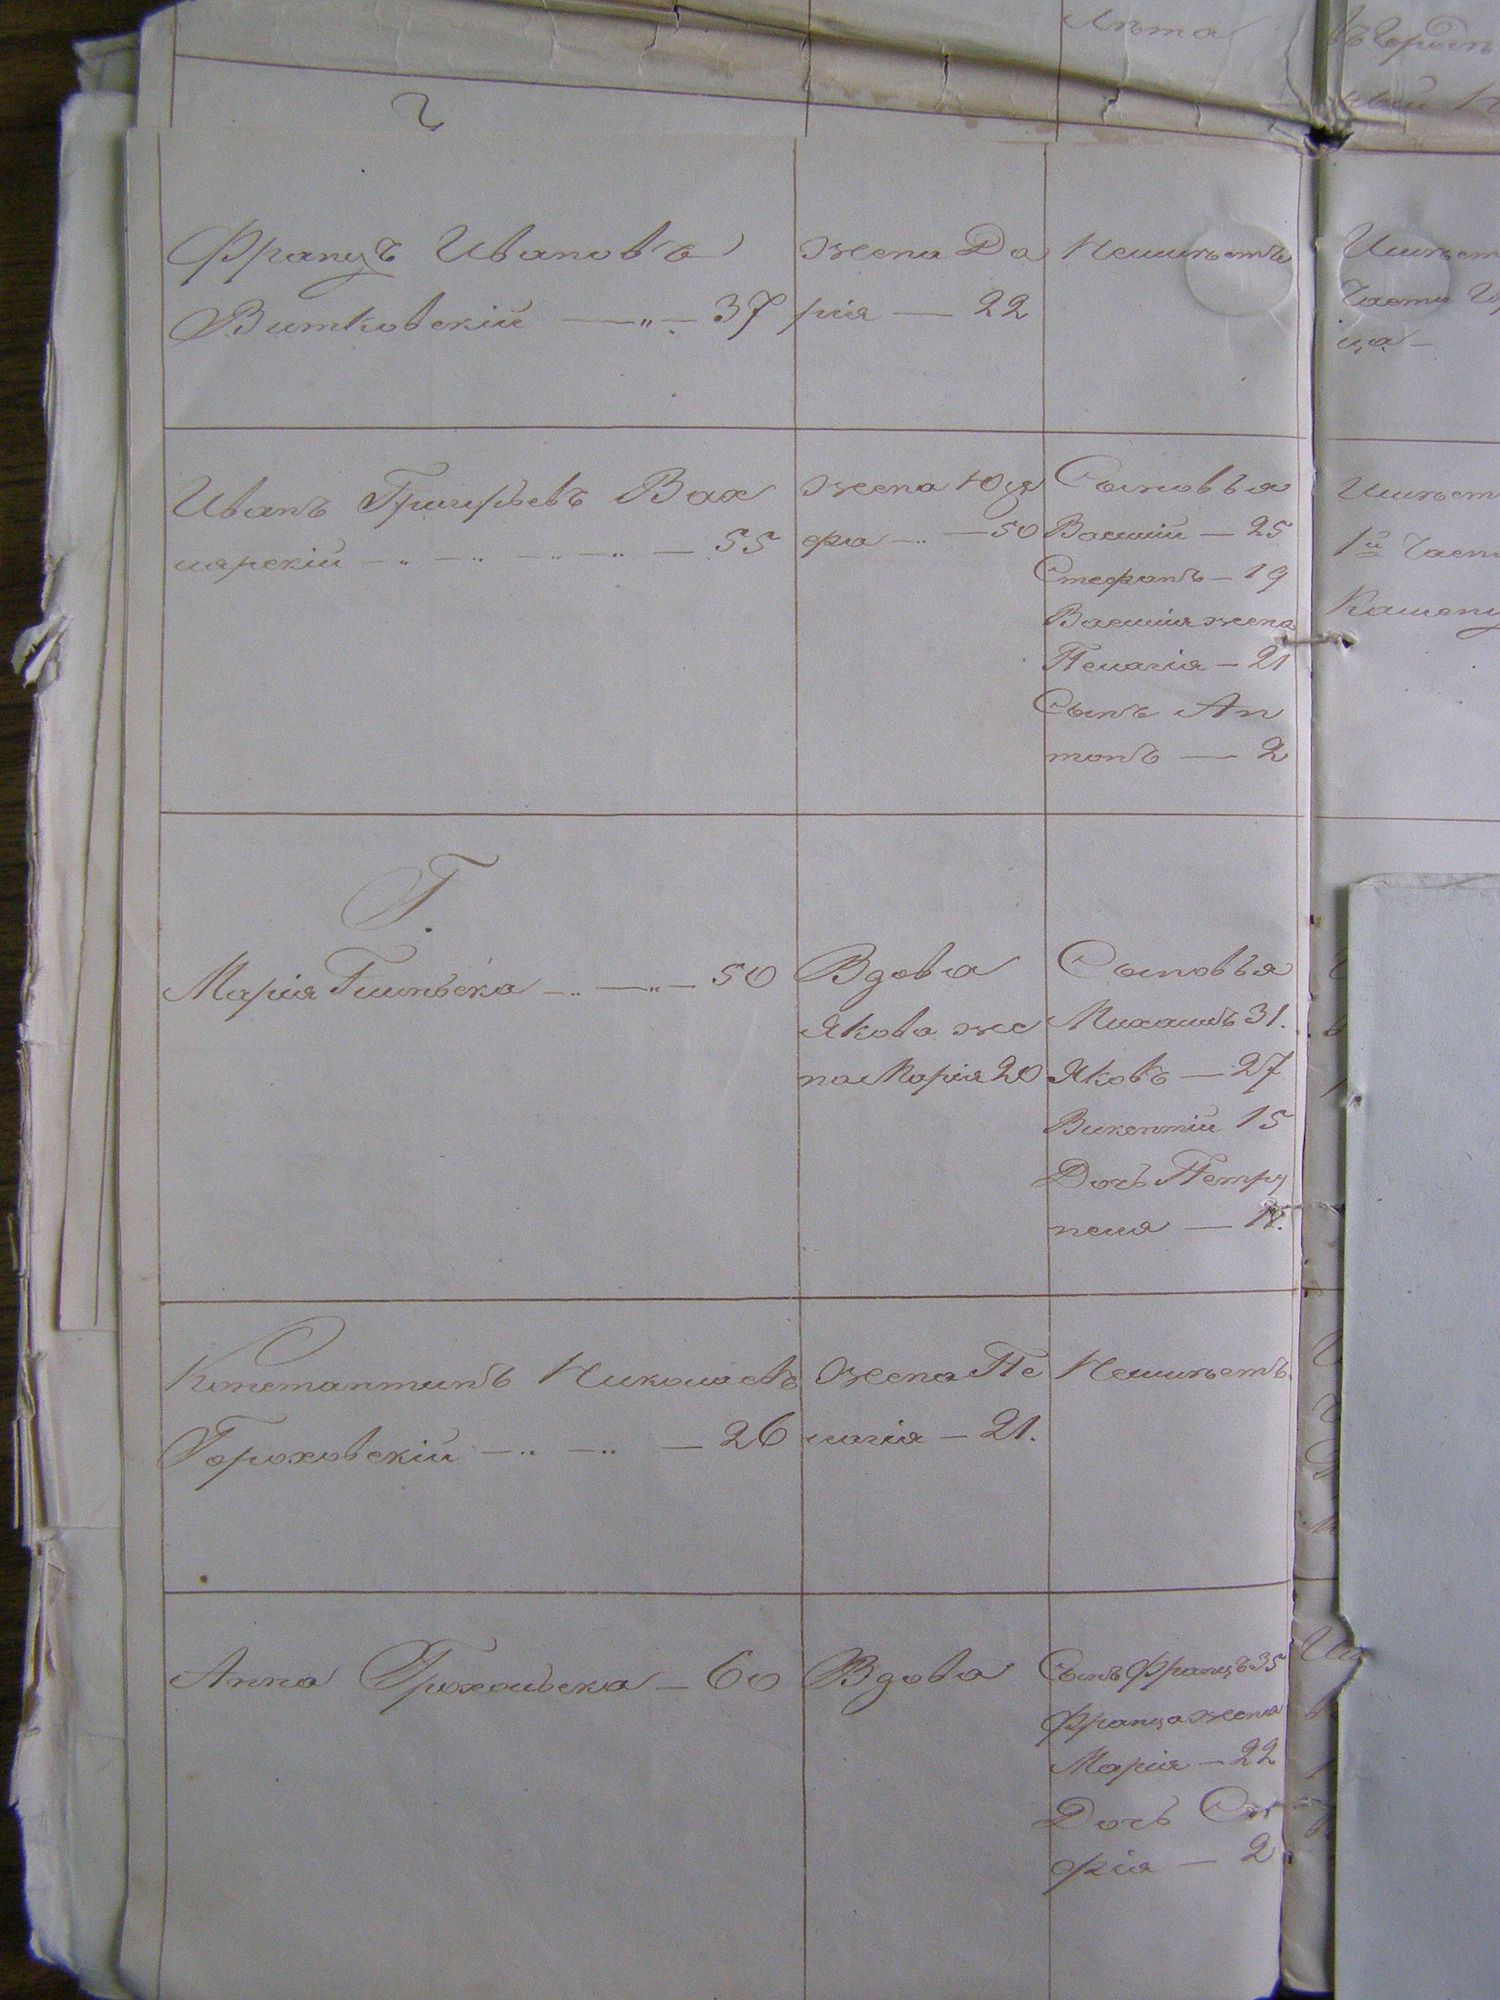 лѣта
2
Францъ Ивановъ
Витковскій — „ — 37
жена Да
рія — 22
Неимѣетъ
Имѣет
части
ца —
Иванъ Григорьевъ Вах
нярскій — „ — „ — „ — 55
жена Юзе
фа — „ — 50
Сыновья
Василій — 25
Стефанъ — 19
Василія жена
Пелагія — 21
Сынъ Ан
тонъ — 2
Имѣет
1й част
Каменц
Г.
Марія Гилевска — „ — „ — 50
Вдова
Якова же
на Марія 20
Сыновья
Михаилъ 31.
Яковъ — 27
Викентій 15
Дочь Петру
неля —
Константинъ Николаевъ
Гороховскій — „ — „ — 26
жена Пе
лагія — 21.
Неимѣетъ.
Анна Грохольска — 60
Вдова
Сынъ Францъ 35
Франца жена
Марія — 22
Дочь Со
фія — 2